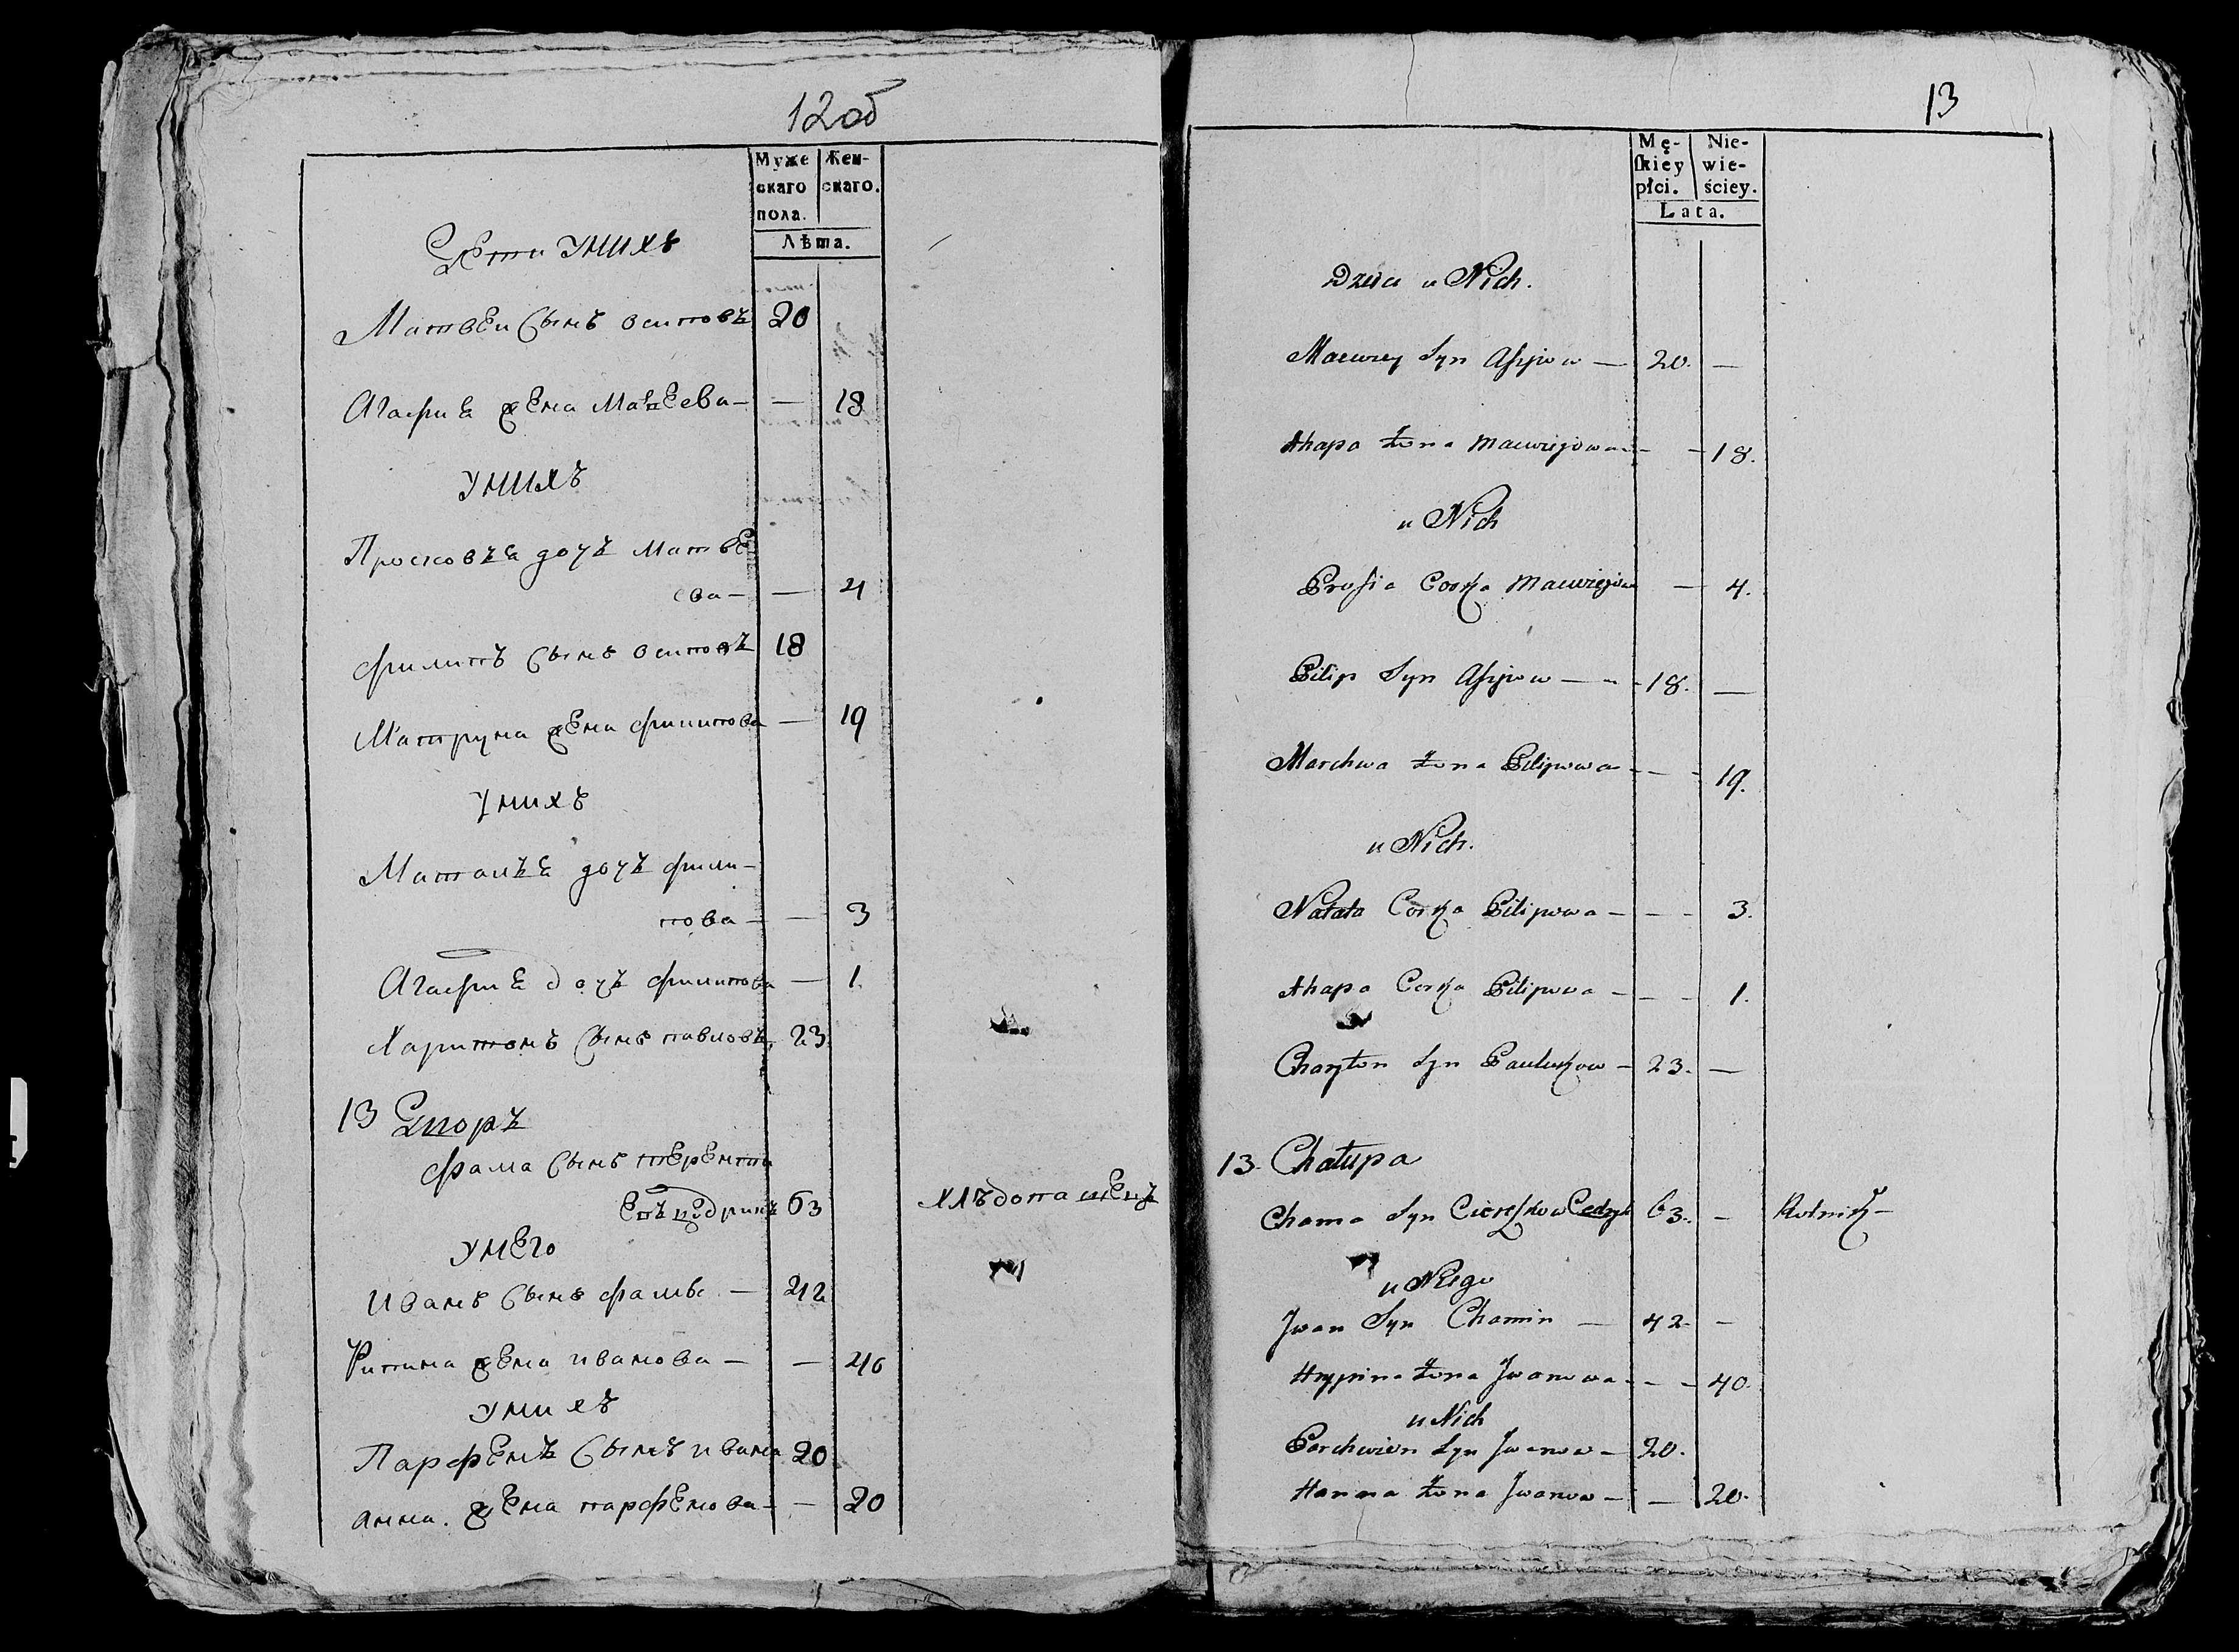 12об
Муже
скаго
пола.
Жен-
скаго.
Лѣта.
Дети унихъ
Матвеи Сынъ осиповъ 20
Агафиа жена Матвеева — — 18
унихъ
Просковъа дочъ Матве
ева — — 4
филипъ Сынъ осиповъ 18
Матруна жена филипова — 19
унихъ
Маталъа дочъ фили-
пова — — 3
Агафиа дочъ филипова — 1.
Харитонъ Сынъ павловъ 23.
13 Дворъ
фама Сынъ терент
63
хлѣбопашецъ
унего
Иванъ Сынъ фамы — 42
жена иванова — — 40
унихъ
Парфенъ Сынъ ивана 20
анна. жена парфенова — — 20
13
Mę-
ſkiey
płci.
Nie-
wie-
ściey.
Lata.
Dzieci u Nich.
Maciwiey Syn Asipow — 20. —
Ahapa żona Maciwiejowa — — 18.
u Nich
Prosia Corka Maciwiejowa — 4.
Pilip Syn Asipow — — 18. —
Marchwa żona Pilipowa — — 19.
u Nich.
Natala Corka Pilipowa — — — 3.
Ahapa Corka Pilipowa — — — 1.
Charyton Syn Paulukow — 23. —
13. Chałupa
Choma Syn Ciereszkow Cedryk 63. — Rolnik —
u Niego
Jwan Syn Chomin — 42. —
Hrypina żona Jwanowa — — — 40.
u Nich
Parchwien Syn Jwanow — 20.
Hanna żona Jwanow — — 20.